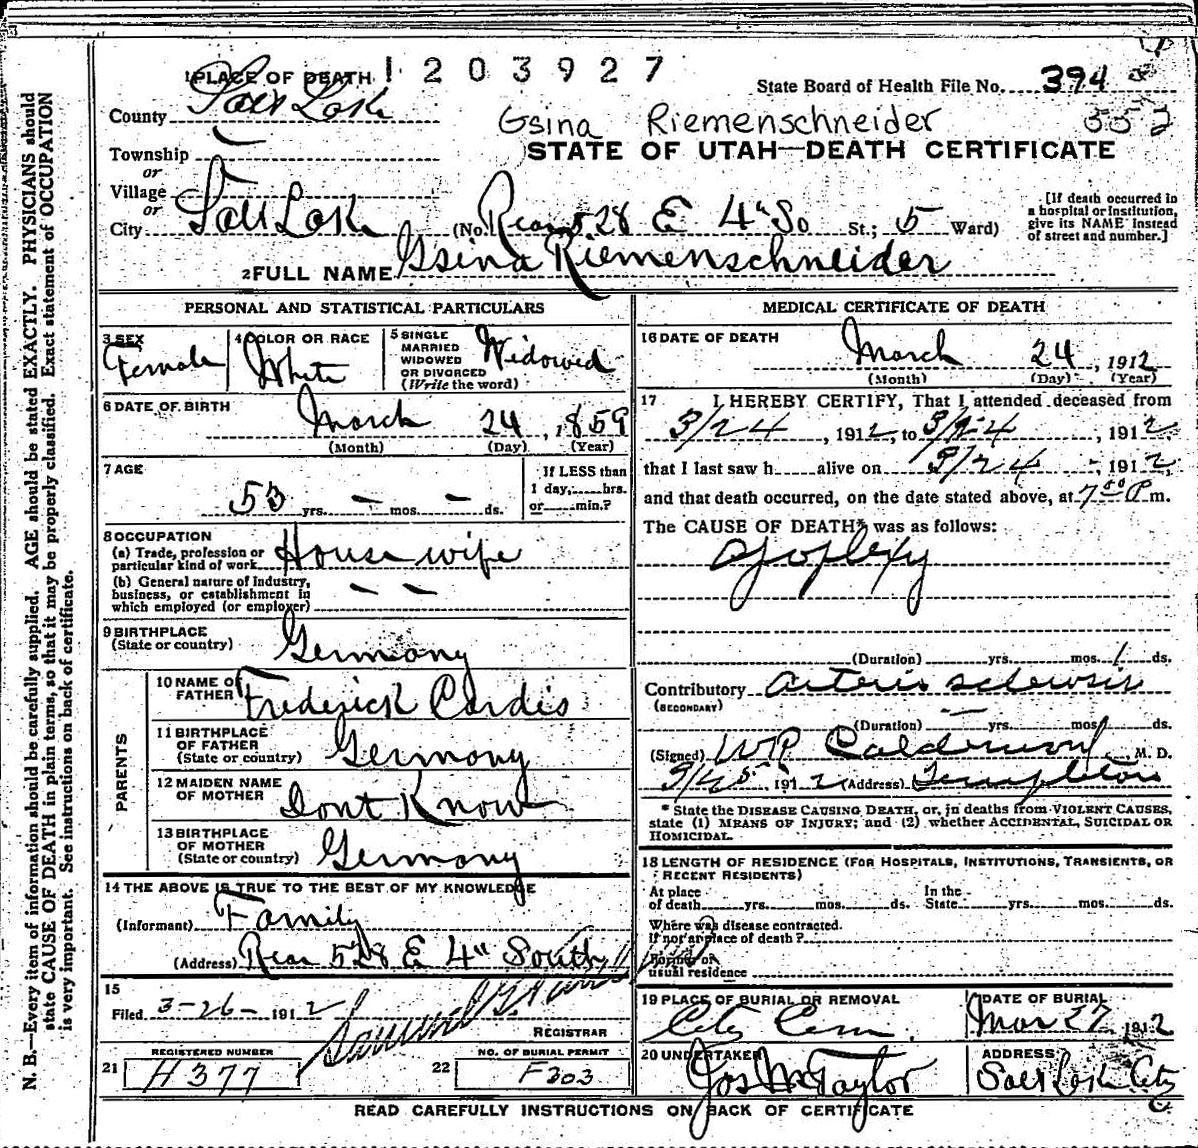 1 PLACE OF DEATH 1203927
State Board of Health File No. 394
County Salt Lake
Gsina Riemenschneider 552
Township
or
STATE OF UTAH—DEATH CERTIFICATE
Village
or
City Salt Lake (No. Rear 528 E 4" So St.; 5 Ward)
[If death occurred in
a hospital or institution,
give its NAME instead
of street and number.]
2 FULL NAME Gsina Riemenschneider
PERSONAL AND STATISTICAL PARTICULARS
3 SEX
Female
4 COLOR OR RACE
White
5 SINGLE
MARRIED
WIDOWED
OR DIVORCED
(Write the word)
Widowed
6 DATE OF BIRTH
March 24, 1859
(Month) (Day) (Year)
7 AGE
53 yrs. — mos. — ds.
If LESS than
1 day,......hrs.
or......min.?
8 OCCUPATION
(a) Trade, profession or
particular kind of work House wife
(b) General nature of industry,
business, or establishment in
which employed (or employer) — —
9 BIRTHPLACE
(State or country) Germany
PARENTS
10 NAME OF
FATHER Frederick Cardis
11 BIRTHPLACE
OF FATHER
(State or country) Germany
12 MAIDEN NAME
OF MOTHER Dont Know
13 BIRTHPLACE
OF MOTHER
(State or country) Germany
14 THE ABOVE IS TRUE TO THE BEST OF MY KNOWLEDGE
(Informant) Family
(Address) Rear 528 E 4" South
15
Filed 3-26- 1912
REGISTRAR
REGISTERED NUMBER
21 H 377
NO. OF BURIAL PERMIT
22 F303
MEDICAL CERTIFICATE OF DEATH
16 DATE OF DEATH
March 24, 1912
(Month) (Day) (Year)
17 I HEREBY CERTIFY, That I attended deceased from
3/24, 1912, to 3/24, 1912,
that I last saw h......alive on 3/24, 1912,
and that death occurred, on the date stated above, at 7 50 P m.
The CAUSE OF DEATH* was as follows:
Apoplexy
(Duration)..........yrs..........mos. 1 ds.
Contributory Arterio sclerosis
(SECONDARY)
(Duration) — yrs..........mos..........ds.
(Signed) W.R. Calderwood, M. D.
3/25, 1912 (Address) Templeton
* State the DISEASE CAUSING DEATH, or, in deaths from VIOLENT CAUSES,
state (1) MEANS OF INJURY; and (2) whether ACCIDENTAL, SUICIDAL OR
HOMICIDAL.
18 LENGTH OF RESIDENCE (FOR HOSPITALS, INSTITUTIONS, TRANSIENTS, OR
RECENT RESIDENTS)
At place
of death......yrs......mos......ds.
In the
State......yrs......mos......ds.
Where was disease contracted.
If not at place of death?
Former or
usual residence
19 PLACE OF BURIAL OR REMOVAL
City Cem
DATE OF BURIAL
Mar 27 1912
20 UNDERTAKER
Jos Wm Taylor
ADDRESS
Salt Lake City
READ CAREFULLY INSTRUCTIONS ON BACK OF CERTIFICATE
N. B.—Every item of information should be carefully supplied. AGE should be stated EXACTLY. PHYSICIANS should
state CAUSE OF DEATH in plain terms, so that it may be properly classified. Exact statement of OCCUPATION
is very important. See instructions on back of certificate.